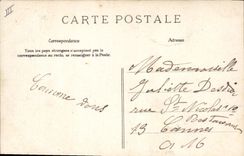 III
CARTE POSTALE
Correspondance
Adresse
Tous les pays étrangers n'acceptent pas la
correspondance au recto, se renseigner à la Poste.
Mademoiselle
Juliette
rue St Nicolas 12
Restaurant
13 Cannes
A M